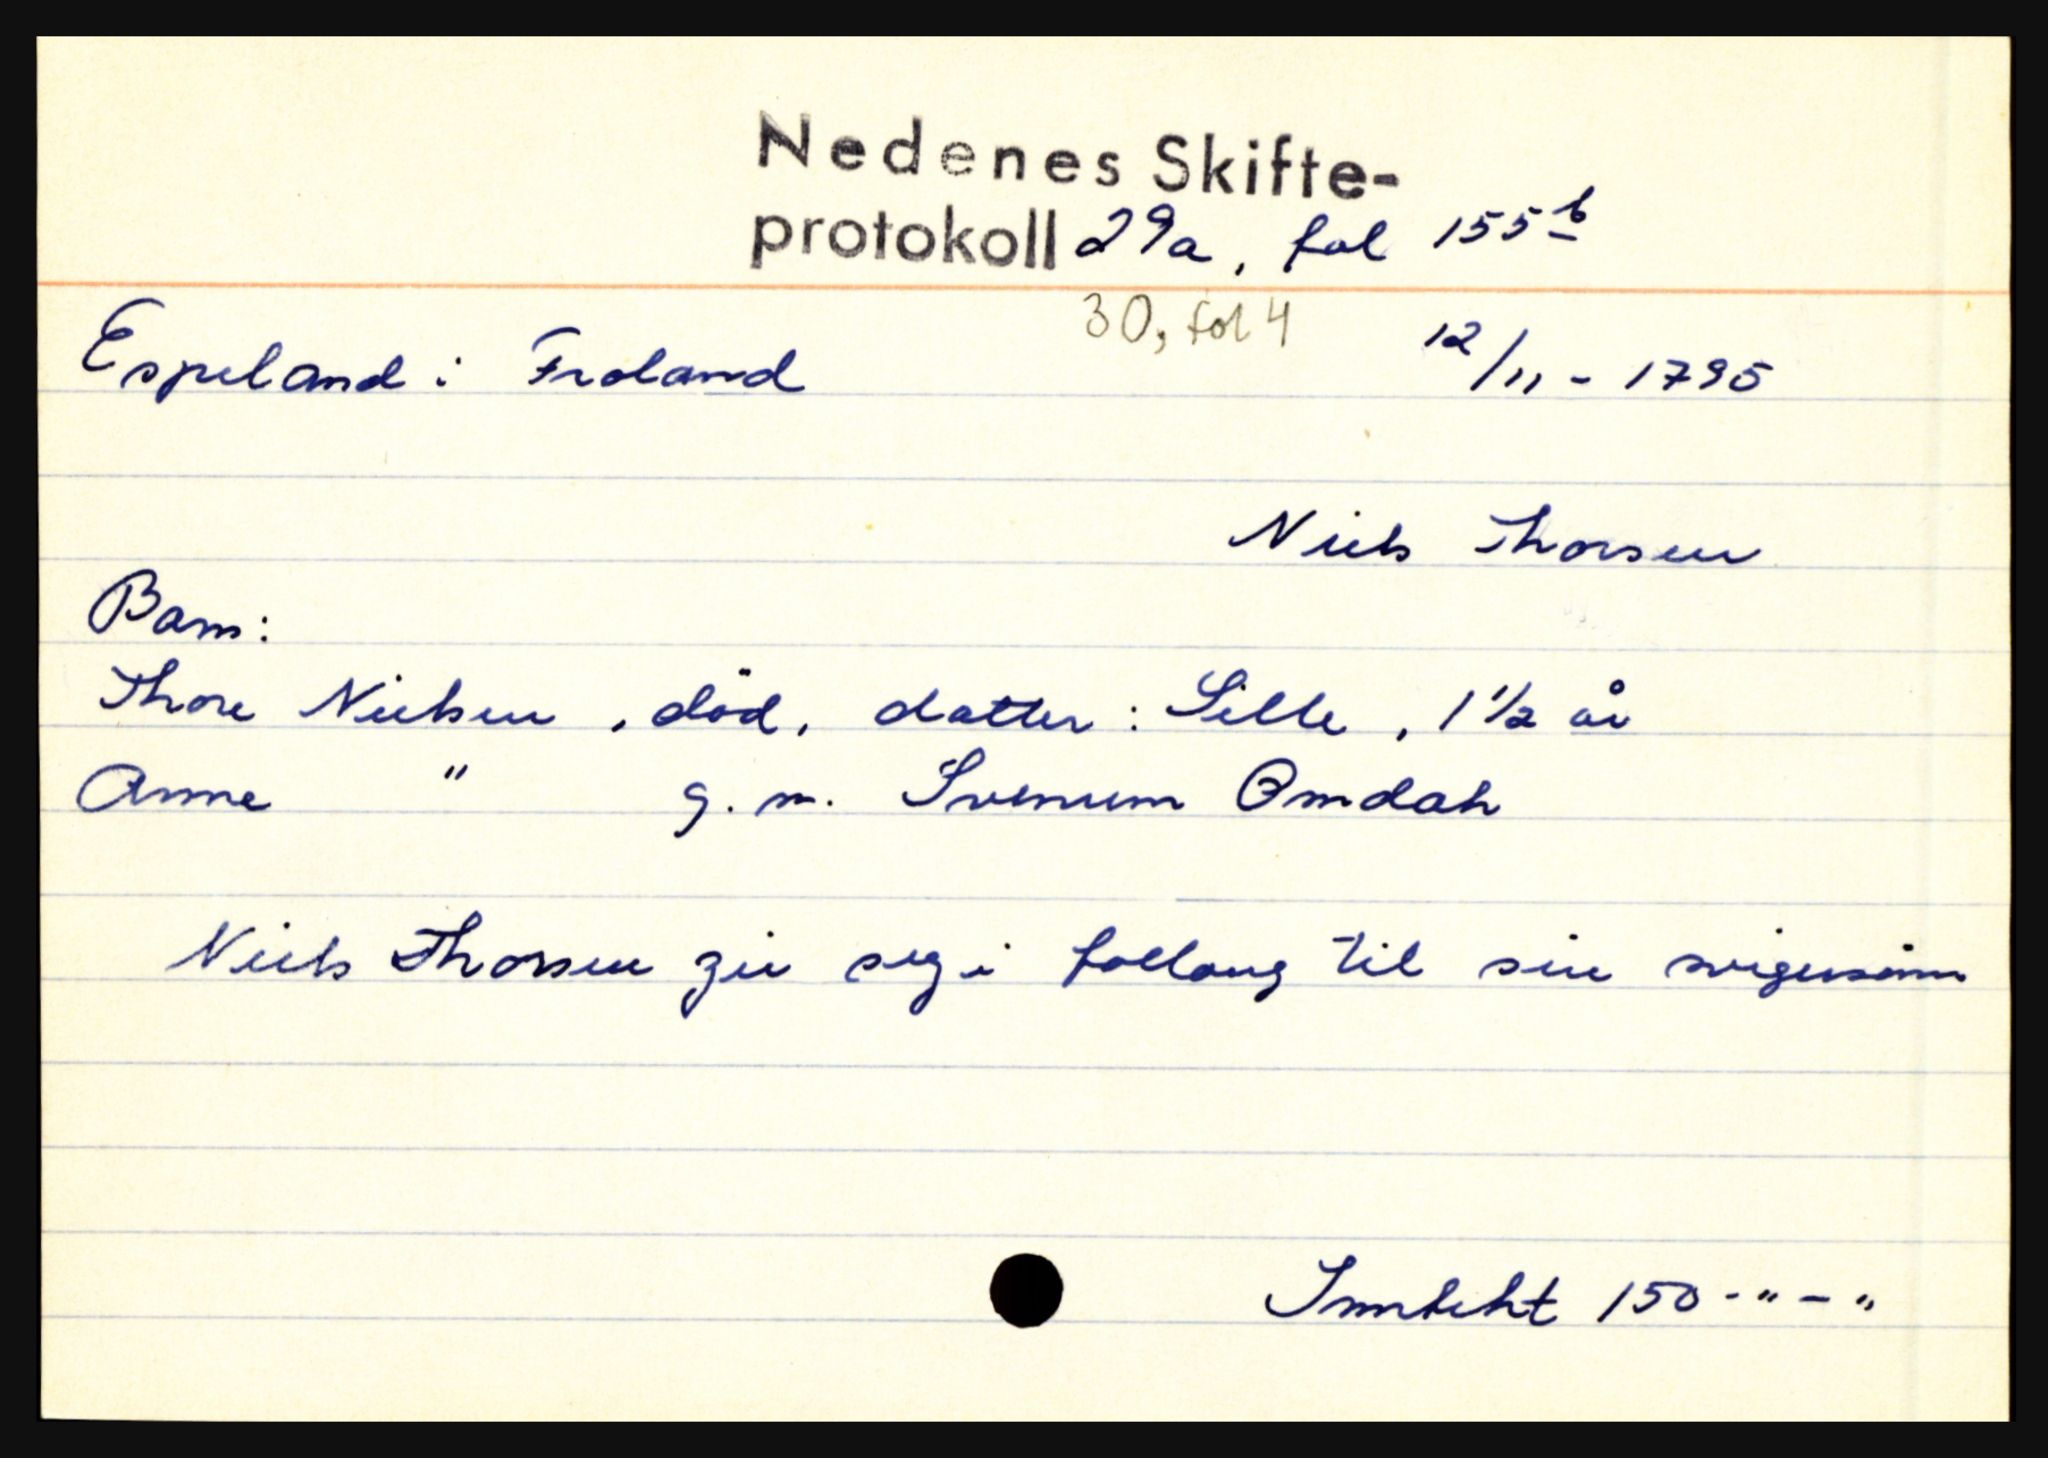 Nedenes Skifte-
protokoll 29a, fol 155b
30, fol 4
Espeland i Froland 12/11 - 1795
Niels Thorsen
Barn:
Thore Nielsen, död, datter: Sille, 1 1/2 år
Anne " g. m. Svenum Omdal
Niels Thorsen gir seg i follaug til sin svigersönn
Inntekt 150 - " - "